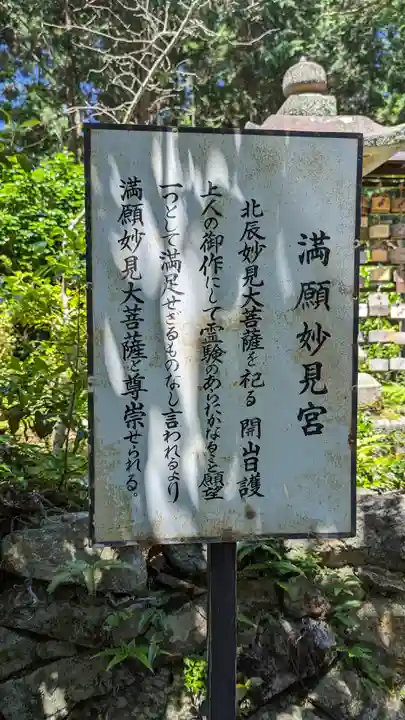 満願妙見宮
北辰妙見大菩薩を祀る　開山日護
上人の御作にして霊験のあらたかなること願望
一つとして満足せざるものなし言われるより
満願妙見大菩薩と尊崇せられる。